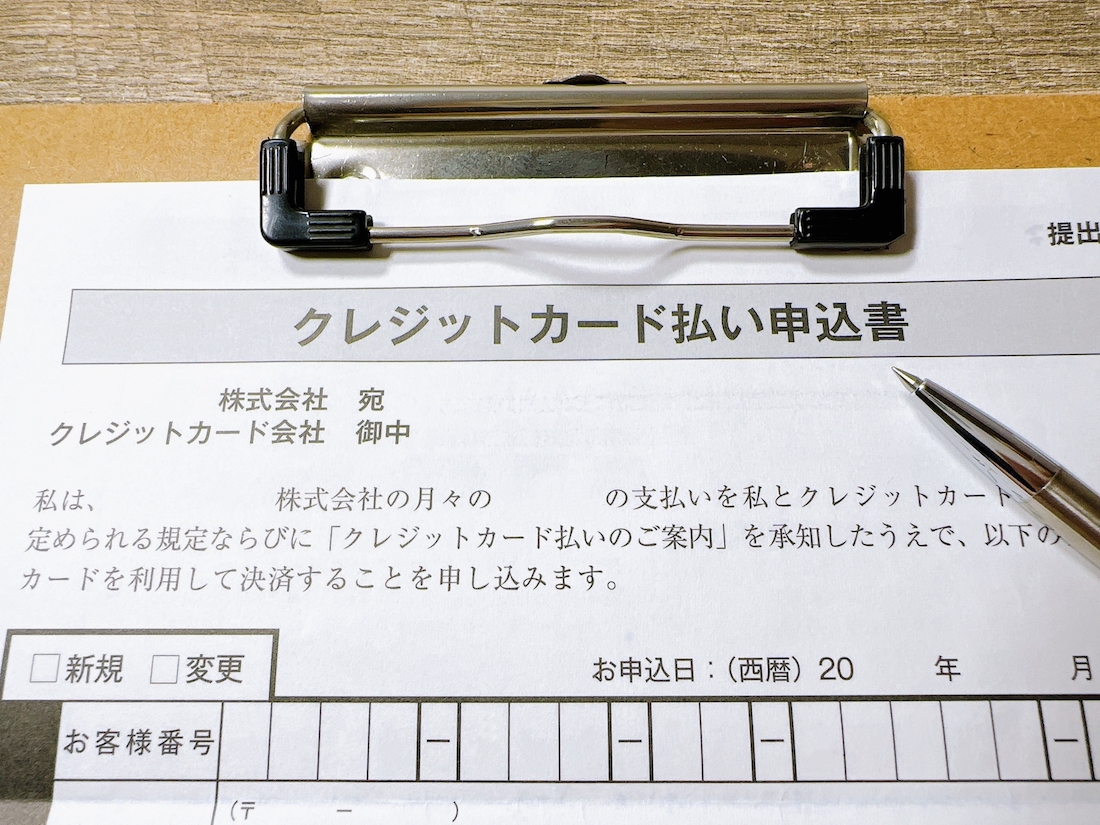 提出
クレジットカード払い申込書
株式会社 宛
クレジットカード会社 御中
私は、 株式会社の月々の の支払いを私とクレジットカード
定められる規定ならびに「クレジットカード払いのご案内」を承知したうえで、以下の
カードを利用して決済することを申し込みます。
□新規 □変更
お申込日：（西暦）20 年 月
お客様番号 － － － －
（〒 － ）